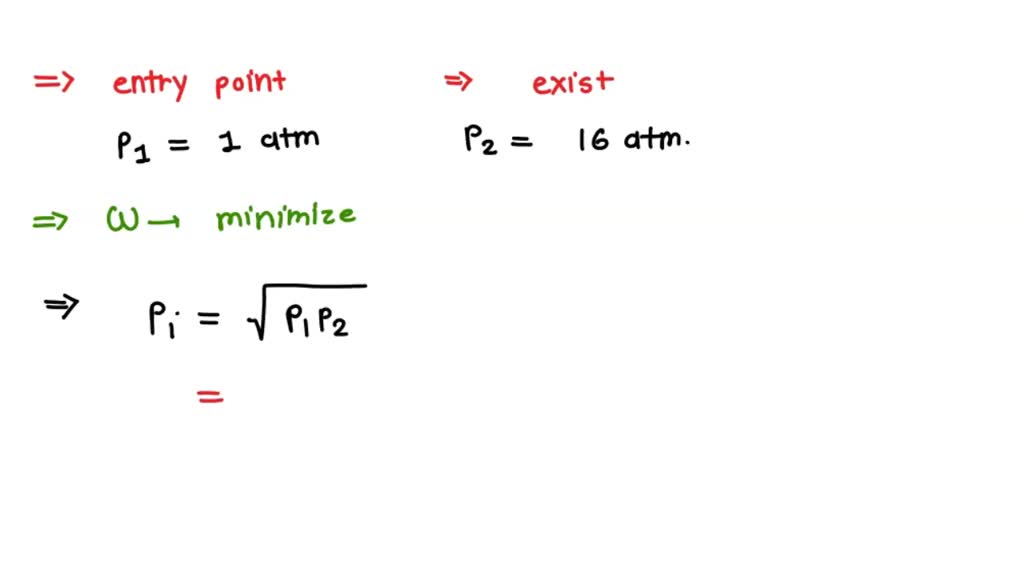 ⇒ entry point ⇒ exist
P₁ = 1 atm P₂ = 16 atm.
⇒ ω → minimize
⇒ Pᵢ = √P₁P₂
=